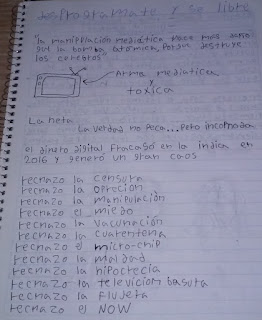 desprogramate y se libre
"la manipulación mediática hace más daño
que la bomba atómica, porque destruye
los cerebros"
Arma mediatica
y
toxica
La neta
La verdad no peca...pero incomoda
el dinero digital fracasó en la india en
2016 y generó un gran caos
rechazo la censura
rechazo la opresion
rechazo la manipulación
rechazo el miedo
rechazo la vacunación
rechazo la cuarentena
rechazo el micro-chip
rechazo la maldad
rechazo la hipocrecia
rechazo la television basura
rechazo la flojera
rechazo el NOW